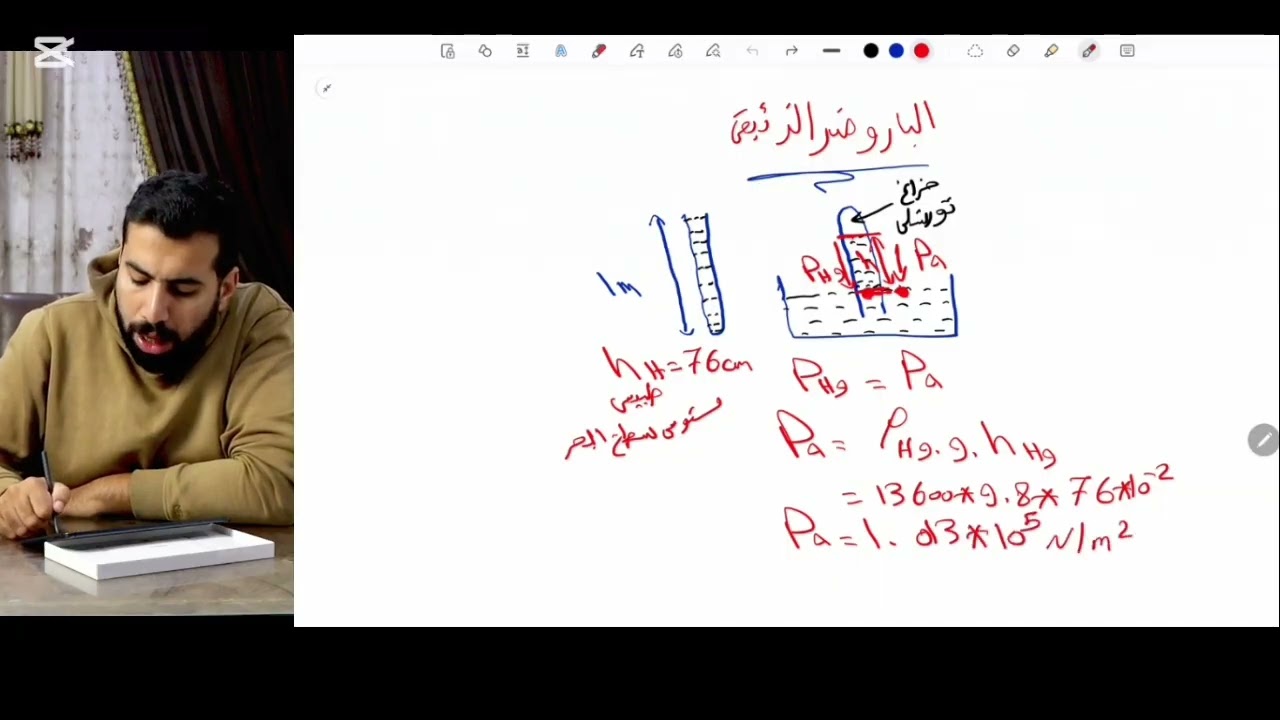 البارومتر الزئبقى
فراغ
تورشيلى
1m
P Hg
h
Pa
h H = 76 cm
طبيعى
مستوى سطح البحر
P Hg = Pa
Pa = ρ Hg . g . h Hg
= 13600 * 9.8 * 76 * 10⁻²
Pa = 1.013 * 10⁵ N/m²